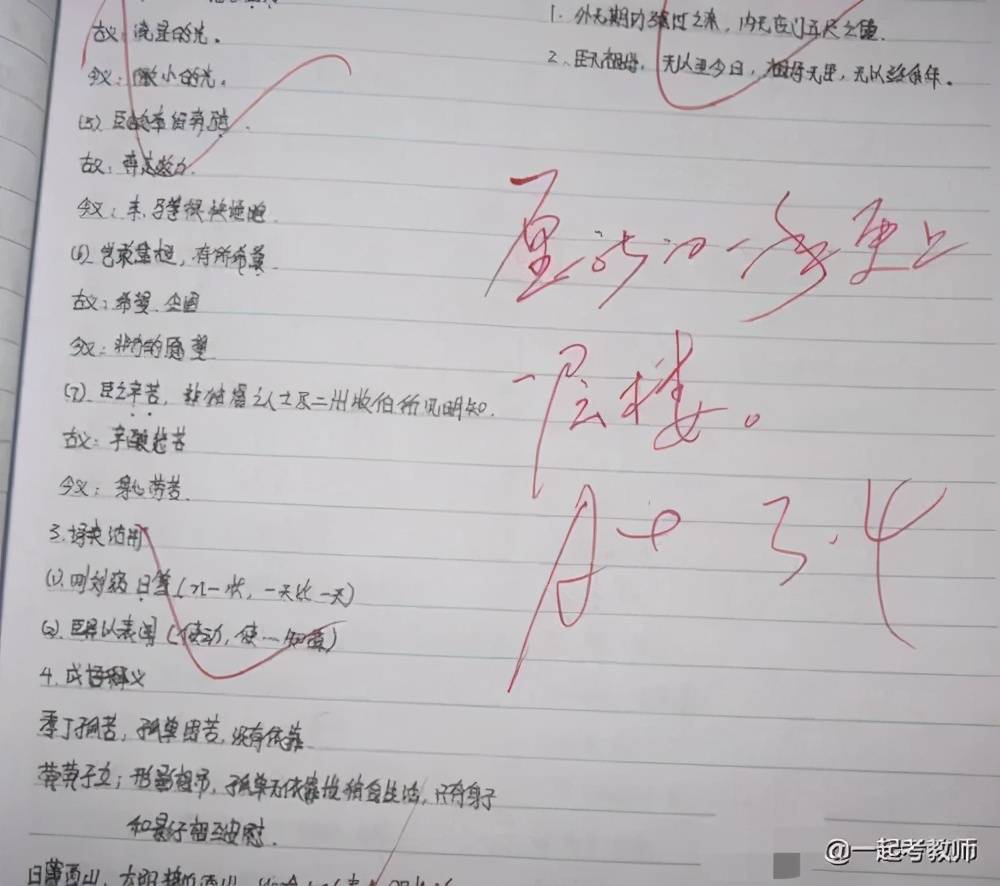 古义：流星的光。
今义：微小的光。
(5) 臣欲奉诏奔驰
古义：奔走效力
今义：车、马等很快地跑
(6) 岂敢盘桓，有所希冀
古义：希望、企图
今义：非分的愿望
(7) 臣之辛苦，非独蜀之人士及二州牧伯所见明知.
古义：辛酸愁苦
今义：身心劳苦
3.词类活用
(1).刘 病日笃(一天比一天)
(2).臣具以表闻(使动，使…知道)
4.成语释义
零丁孤苦，孤单困苦，没有依靠
茕茕孑立；形影相吊，孤单无依靠 生活，只有身子
和影子相互安慰.
日薄西山，太阳 西山
1. 外无期功强近之亲，内无应门五尺之僮.
2、臣无祖母，无以至今日，祖母无臣，无以终余年。
更上
一层楼。
A+ 3.4
@一起考教师